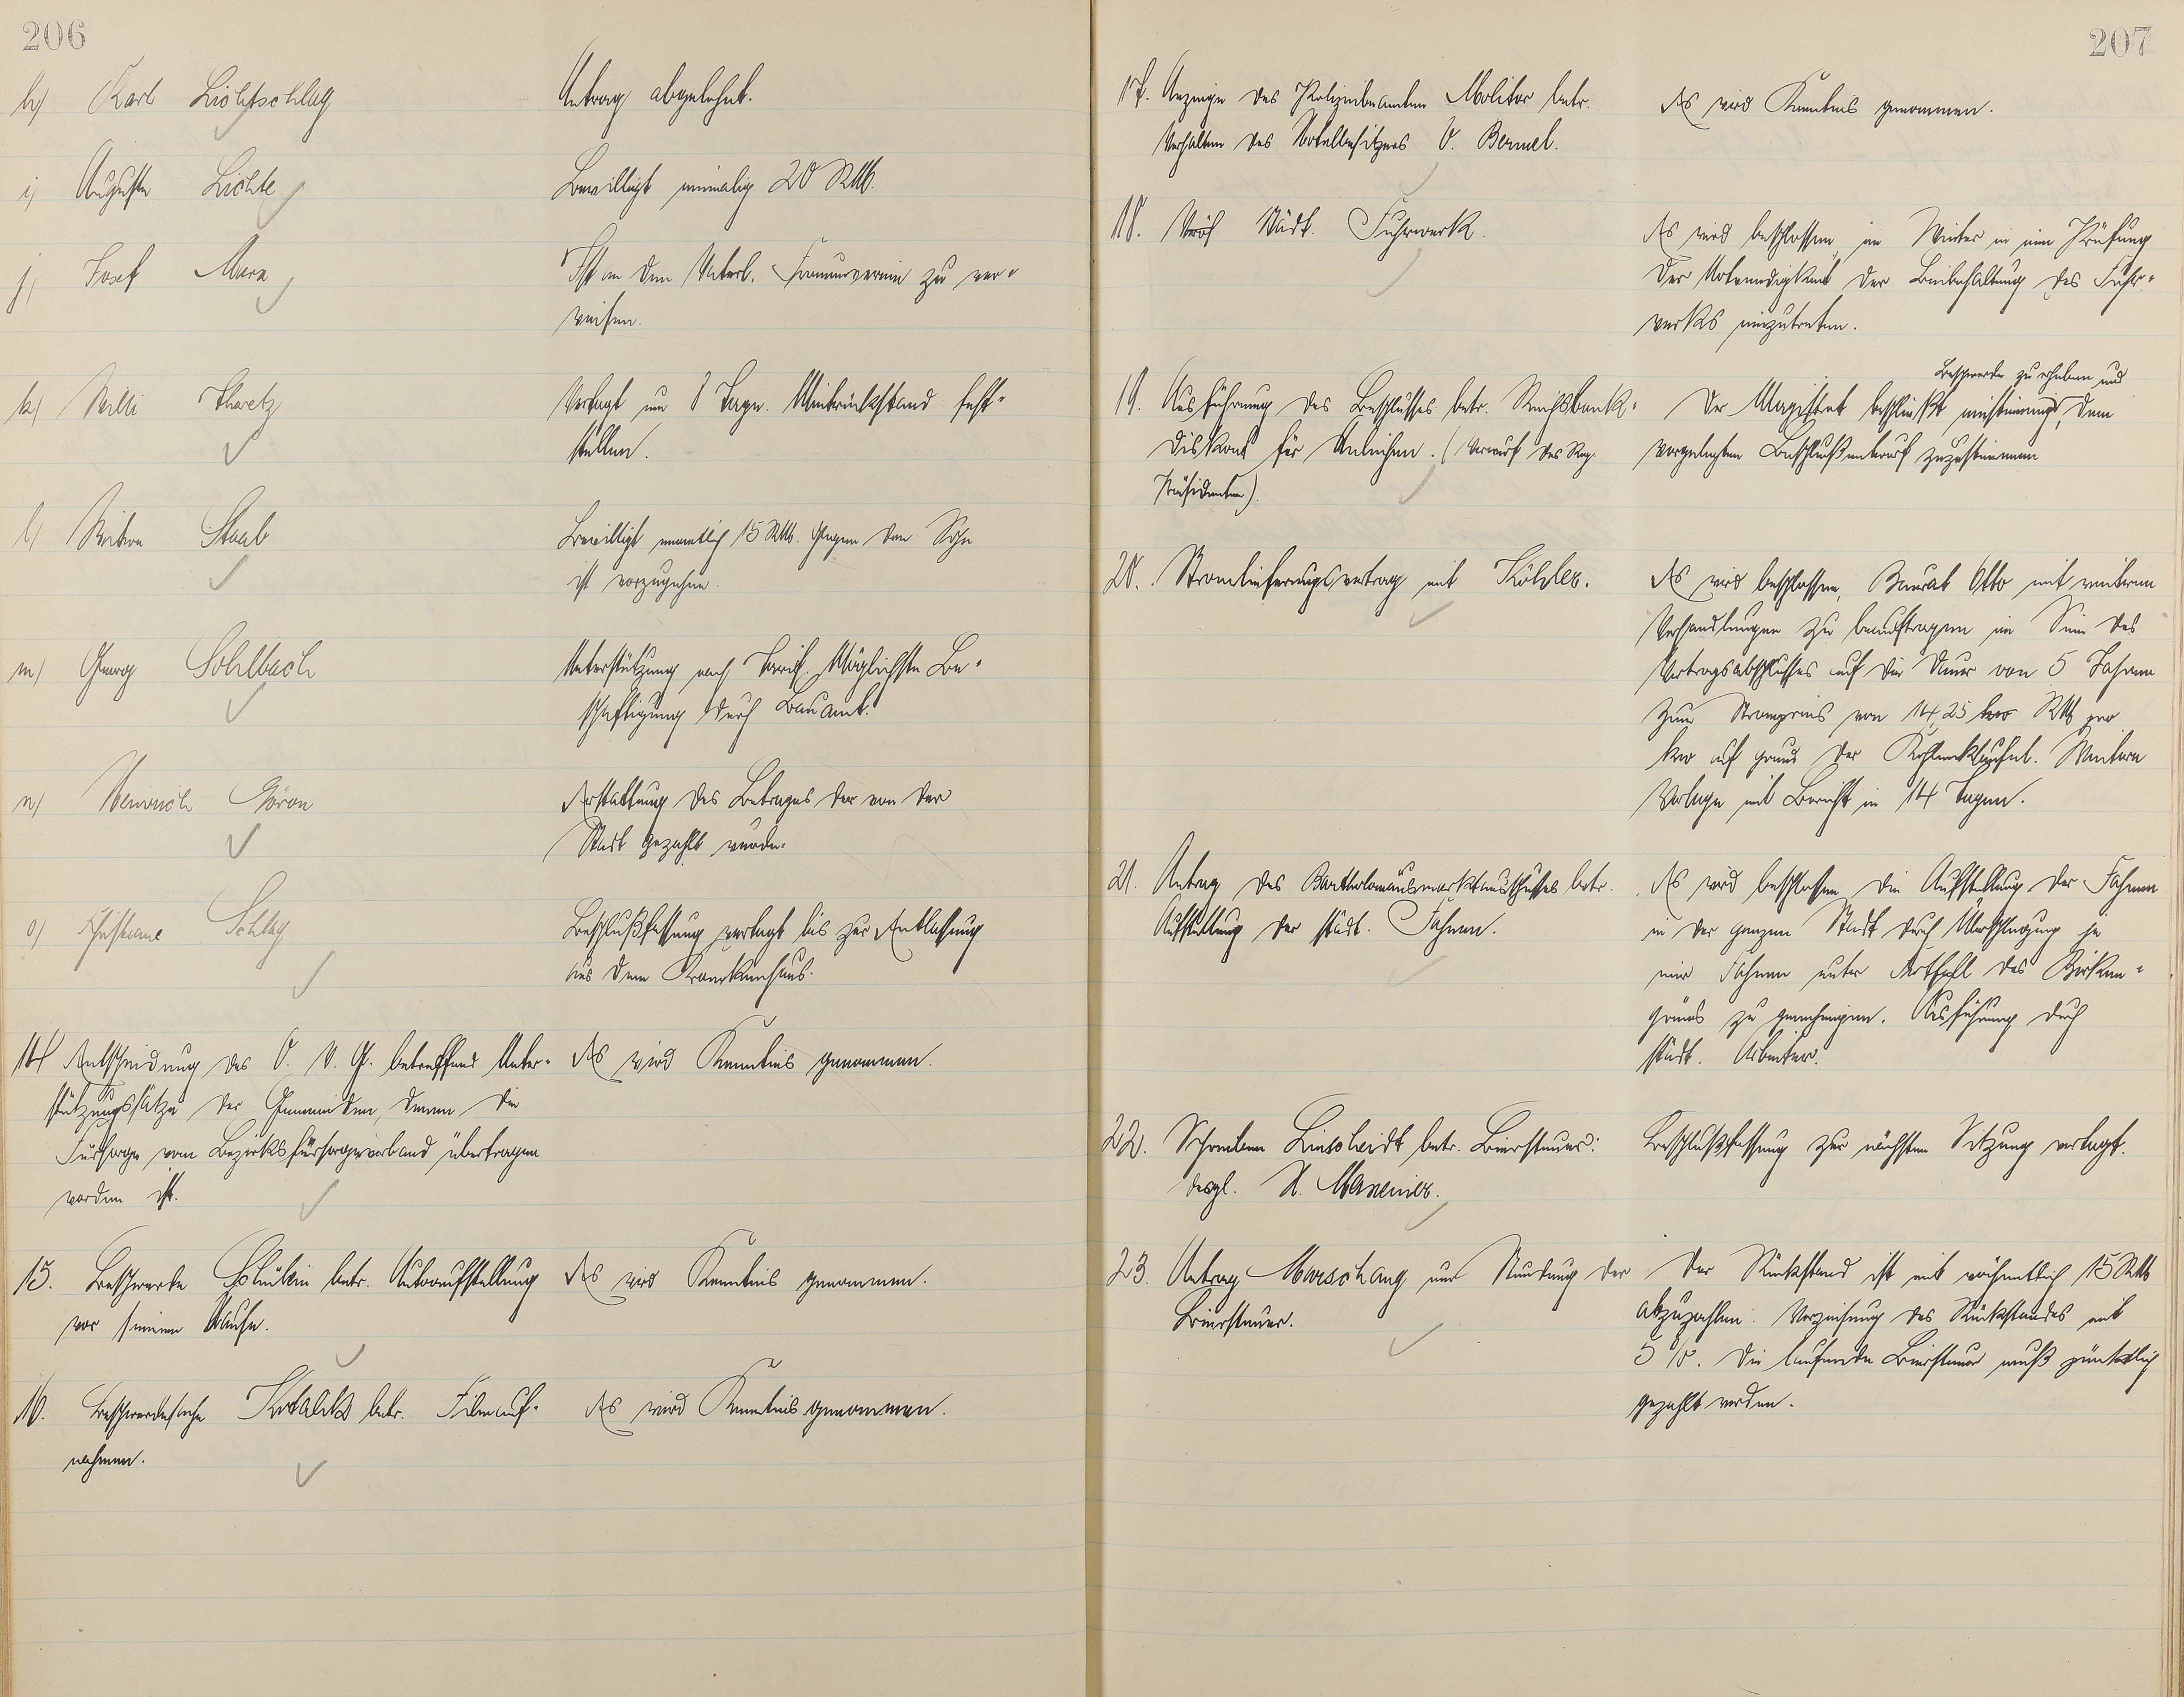 206
h) Karl Lichtschlag
Antrag abgelehnt.
i) Auguste Lichte
Bewilligt einmalig 20 RM.
j) Josef Marx
Ist an den Vaterl. Frauenverein zu ver-
weisen.
k) Willi Theretz
Vertagt um 8 Tage. Mietrückstand fest-
stellen.
l) Witwe Staab
Bewilligt monatlich 15 RM. Gegen den Sohn
ist vorzugehen.
m) Georg Sohlbach
Unterstützung nach Tarif. Möglichste Be-
schäftigung durch Bauamt.
n)
Erstattung des Betrages der von der
Stadt gezahlt wurde.
o) Christiane Schlag
Beschlußfassung vertagt bis zur Entlassung
aus dem Krankenhaus.
14 Entscheidung des O. V. G. betreffend Unter-
stützungssätze der Gemeinden, denen die
Fürsorge vom Bezirksfürsorgeverband übertragen
worden ist.
Es wird Kenntnis genommen.
15. Beschwerde betr. Autoaufstellung
vor seinem Hause.
Es wird Kenntnis genommen.
16. Beschwerdesache betr. Filmauf-
nahmen.
Es wird Kenntnis genommen.
207
17. Anzeige des Polizeibeamten Molitor betr.
Verhalten des Hotelbesitzers V. Bernel.
Es wird Kenntnis genommen.
18. Städt. Fuhrwerk.
Es wird beschlossen, im Winter in eine Prüfung
der Notwendigkeit der Beibehaltung des Fuhr-
werks einzutreten.
19. Ausführung des Beschlusses betr. Reichsbank-
diskont für Anleihen. (Vorwurf des Reg.
Präsidenten).
Beschwerde zu erheben und
Der Magistrat beschließt einstimmig, dem
vorgelegten Beschlußentwurf zuzustimmen
20. Stromlieferungsvertrag mit Köhler.
Es wird beschlossen, Baurat Otto mit weiteren
Verhandlungen zu beauftragen im Sinne des
Vertragsabschlusses auf die Dauer von 5 Jahren
zum Strompreis von 14,25 kw RM pro
kw auf grund der Kohlenklausel. Weitere
Vorlage mit Bericht in 14 Tagen.
21. Antrag des Bartholomäusmarktausschusses betr.
Aufstellung der städt. Fahnen.
Es wird beschlossen die Aufstellung der Fahnen
in der ganzen Stadt durch Überschlagung je
einer Fahnen unter Fortfall des Birken-
grüns zu genehmigen. Ausführung durch
städt. Arbeiter.
22. Schreiben Linscheidt betr. Biersteuer:
desgl.
Beschlußfassung zur nächsten Sitzung vertagt.
23. Antrag Marschang um Stundung der
Biersteuer.
Der Rückstand ist mit wöchentlich 15 RM
abzuzahlen. Verzinsung des Rückstandes mit
5 %. Die laufende Biersteuer muß pünktlich
gezahlt werden.